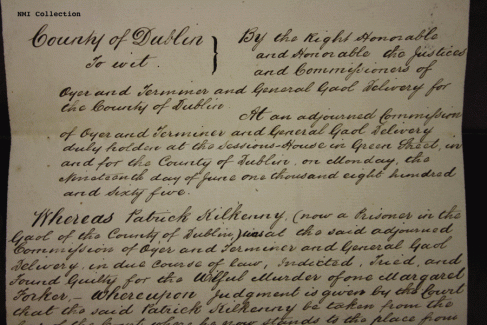 NMI Collection
County of Dublin } By the Right Honorable
To wit. and Honorable the Justices
and Commissioners of
Oyer and Terminer and General Gaol Delivery for
the County of Dublin.
At an adjourned Commission
of Oyer and Terminer and General Gaol Delivery
duly holden at the Sessions-House in Green Street, in
and for the County of Dublin, on Monday, the
Nineteenth day of June one thousand eight hundred
and sixty five.
Whereas Patrick Kilkenny, (now a Prisoner in the
Gaol of the County of Dublin,) was at the said adjourned
Commission of Oyer and Terminer and General Gaol
Delivery, in due course of law, Indicted, Tried, and
Found Guilty, for the Wilful Murder of one Margaret
Farker, – Whereupon Judgment is given by the Court
that the said Patrick Kilkenny be taken from the
where he now stands to the place from